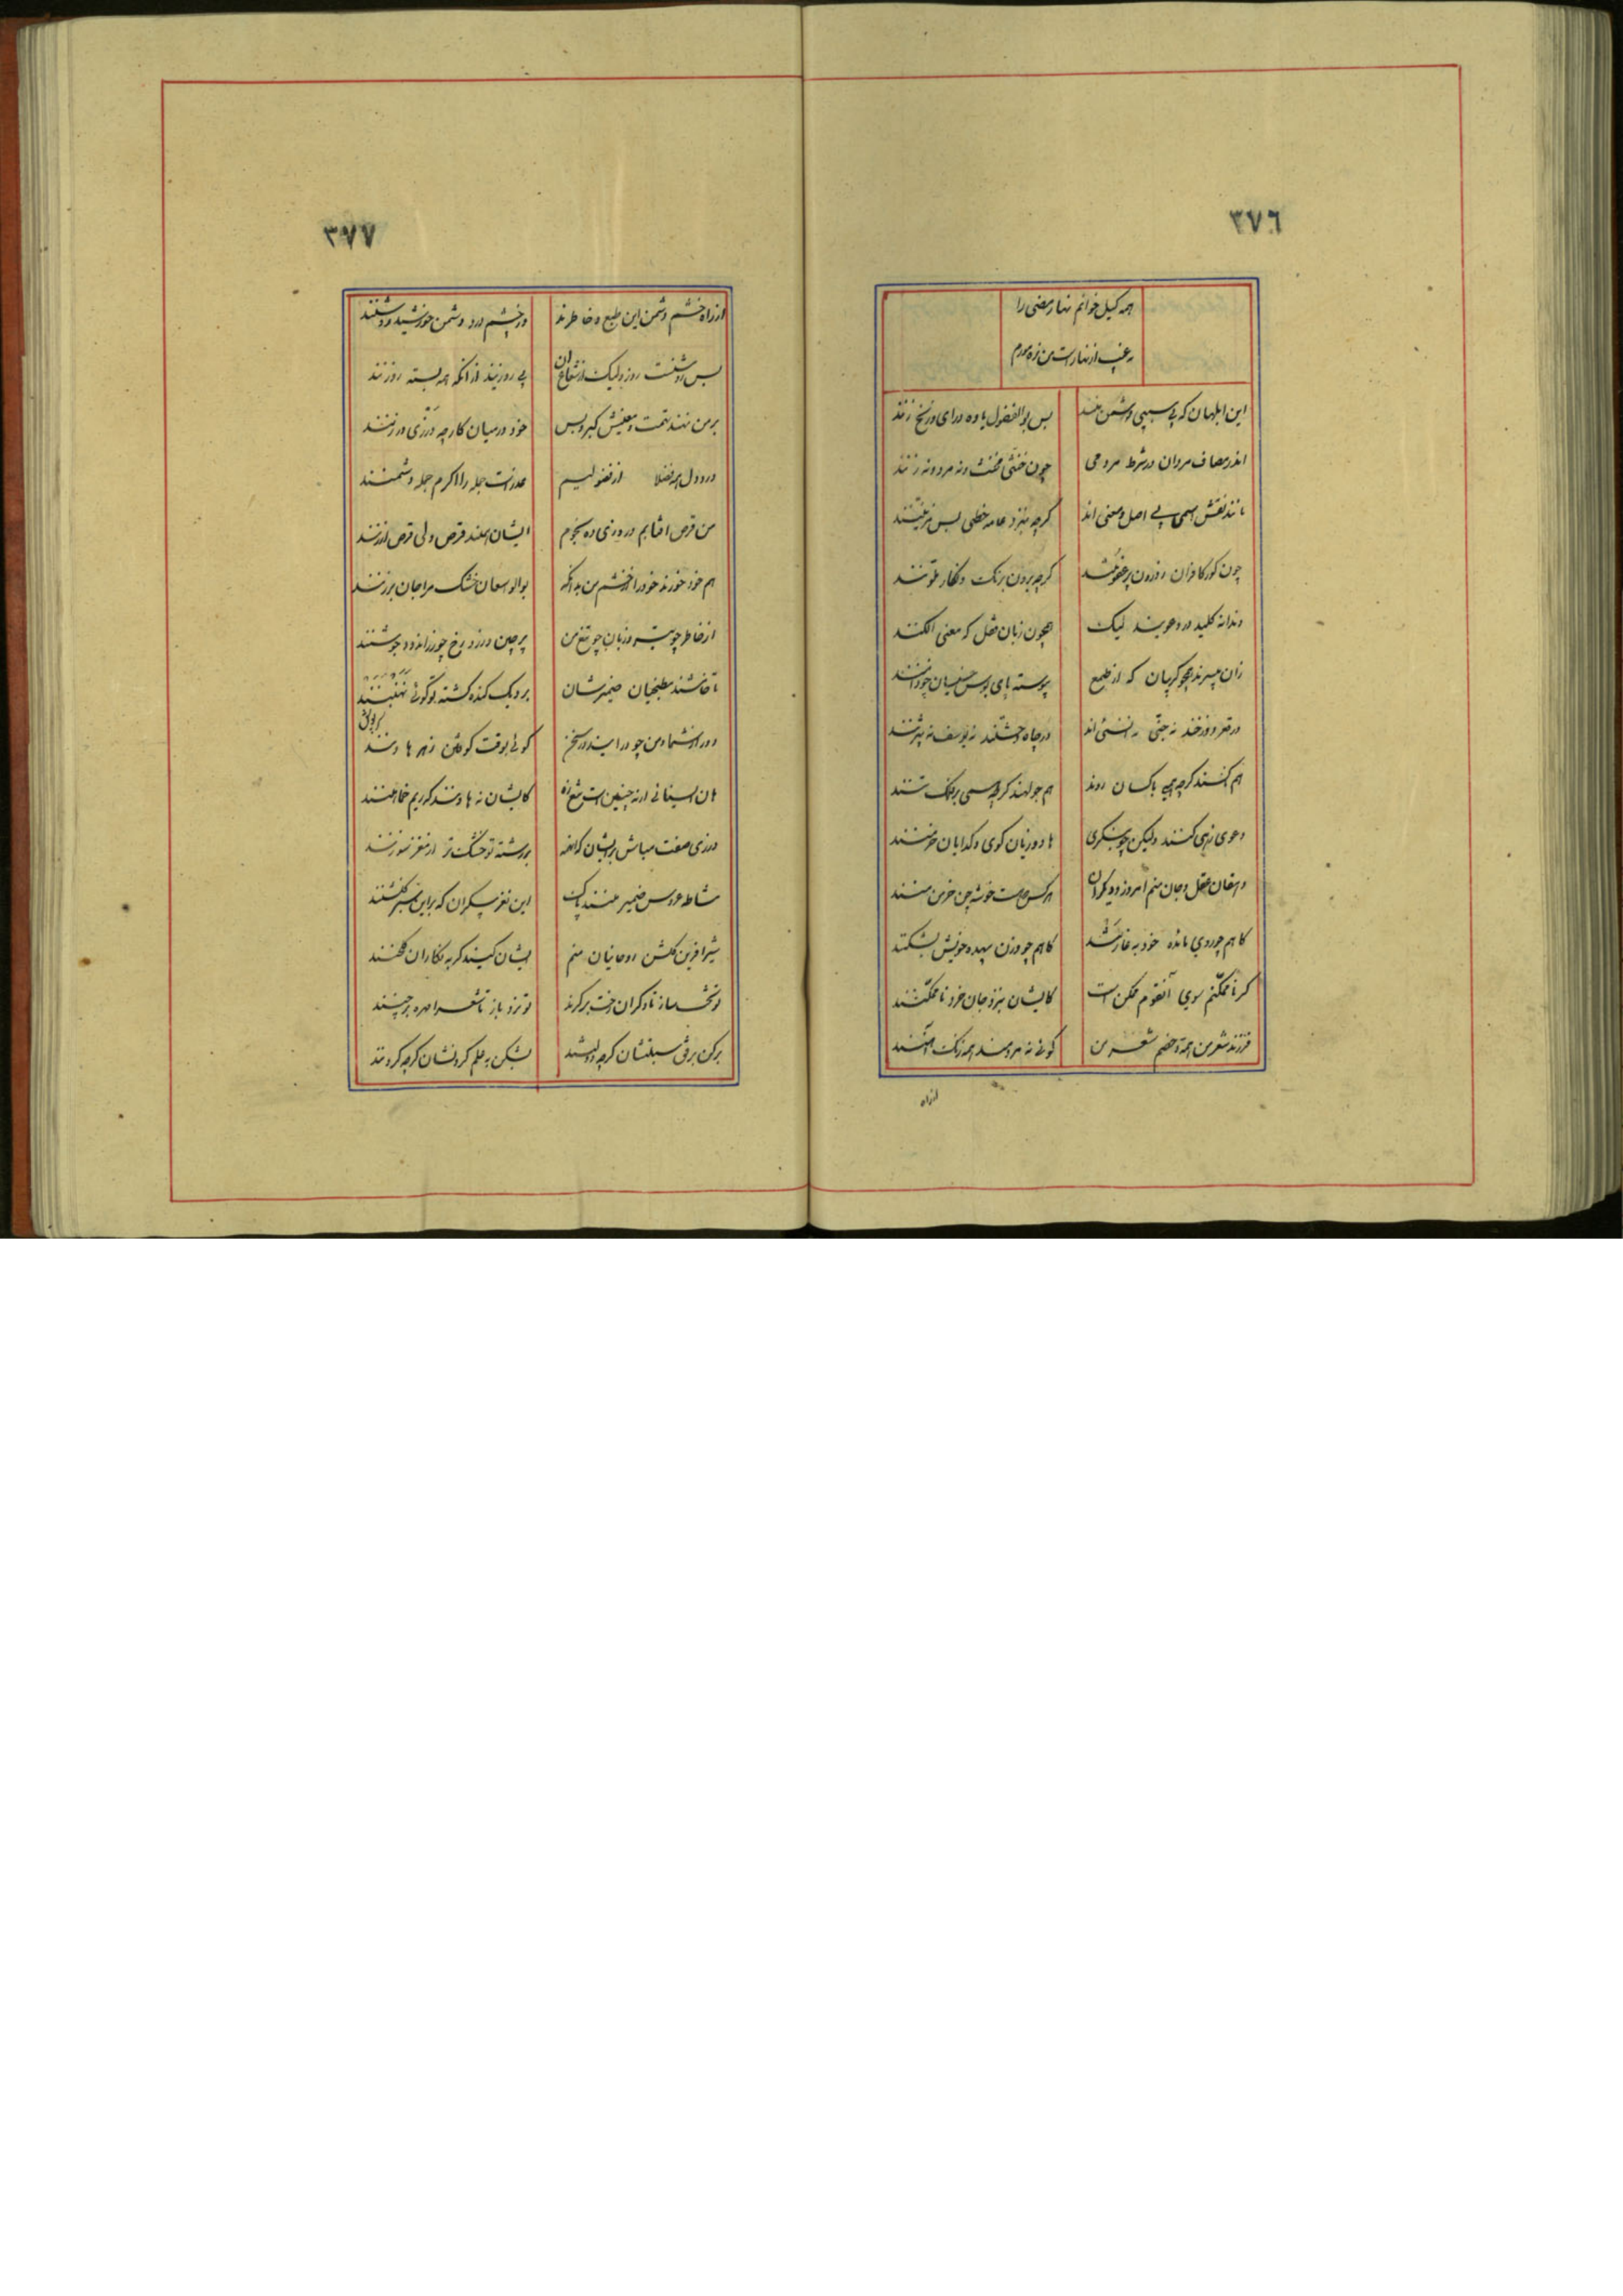 ٣٧٦
همه کیل خوانم نهار مضی را
این ابلهان که بی سببی دشمن منند
بس بوالفضول یاوه درای و زنخ زنند
اندر مصاف مردان در شرط مردمی
چون خنثی مخنث و نه مرد و نه زنند
مانند نقش اسمی بی اصل و معنی اند
گرچه بنزد عامه خطی بس مزینند
چون گور کافران ز درون پر عفونتند
گرچه برون برنگ و نگار ملونند
دندانه کلید در دعویند لیک
همچون زبان قفل که معنی الکنند
زان بی سرند همچو گریبان که از طمع
پیوسته پای بوس خسیسان چو دامنند
در قعر دوزخند نه جنی نه انسی اند
در چاه وحشتند نه یوسف نه بیژنند
هم ناکسند گرچه همی باکسان روند
هم جولهند گرچه همی بر فلک تنند
دعوی دهی کنند ولیکن چو بنگری
هادوریان کوی و گدایان خرمنند
دهقان عقل و جان منم امروز و دیگران
هر کس که هست خوشه چین خرمن منند
گاهم چو روی مائده خود به غارتند
گاهم چو وزن بیهده خویش بشکنند
گر ناممکنم سوی آنقوم ممکن است
کایشان بنزد جان خرد ناممکنند
فرزند شعر من همه و خصم شعر من
گوئی نه مردمند همه ریک آهنند
از راه
٣٧٧
از راه خشم دشمن این طبع و خاطرند
در چشم درد دشمن خورشید روشنند
بس روشنست روز ولیک از شعاع آن
بی روزنیند از آنکه همه بسته روزنند
بر من نهند تهمت و معنیش کبر و بس
خود در میان کار چه درزی و درزنند
در دل همه فضلا از فضولیم
عذرست جمله را اگرم جمله دشمنند
من قرص آفتابم در روزی ده نجوم
ایشان هنند قرص ولی قرص ارزنند
هم خود خورند خود را از خشم من بدانکه
از خاطر چو تیر و زبان چو تیغ من
پر چین و زرد رخ چو زراندوده جوشنند
تا خامشند مطبخیان ضمیرشان
بر دیگ گنده گشته تو گوئی نهنبنند
دور از شما و من چو درآیند در سخن
گوئی بوقت کوفتن زهر هاونند
هان ای سنائی ار نه چنین است تیغ زن
کایشان نه هاونند که ریم خماهنند
درزی صفت مباش بر ایشان
بر رشته تو خشکتر از مغز سوزنند
مشاطه عروس ضمیر منند پاک
این نغز پیکران که بر این سبز گلشنند
شیرآفرین گلشن روحانیان منم
ایشان کیند گربه نگاران گلخنند
تو تخت ساز تا دگران رخت برگرند
تو نرد باز تا شعرا مهره برچنند
برکن به رفق سبلتشان گرچه دولتند
بشکن به حلم گردنشان گرچه گردنند